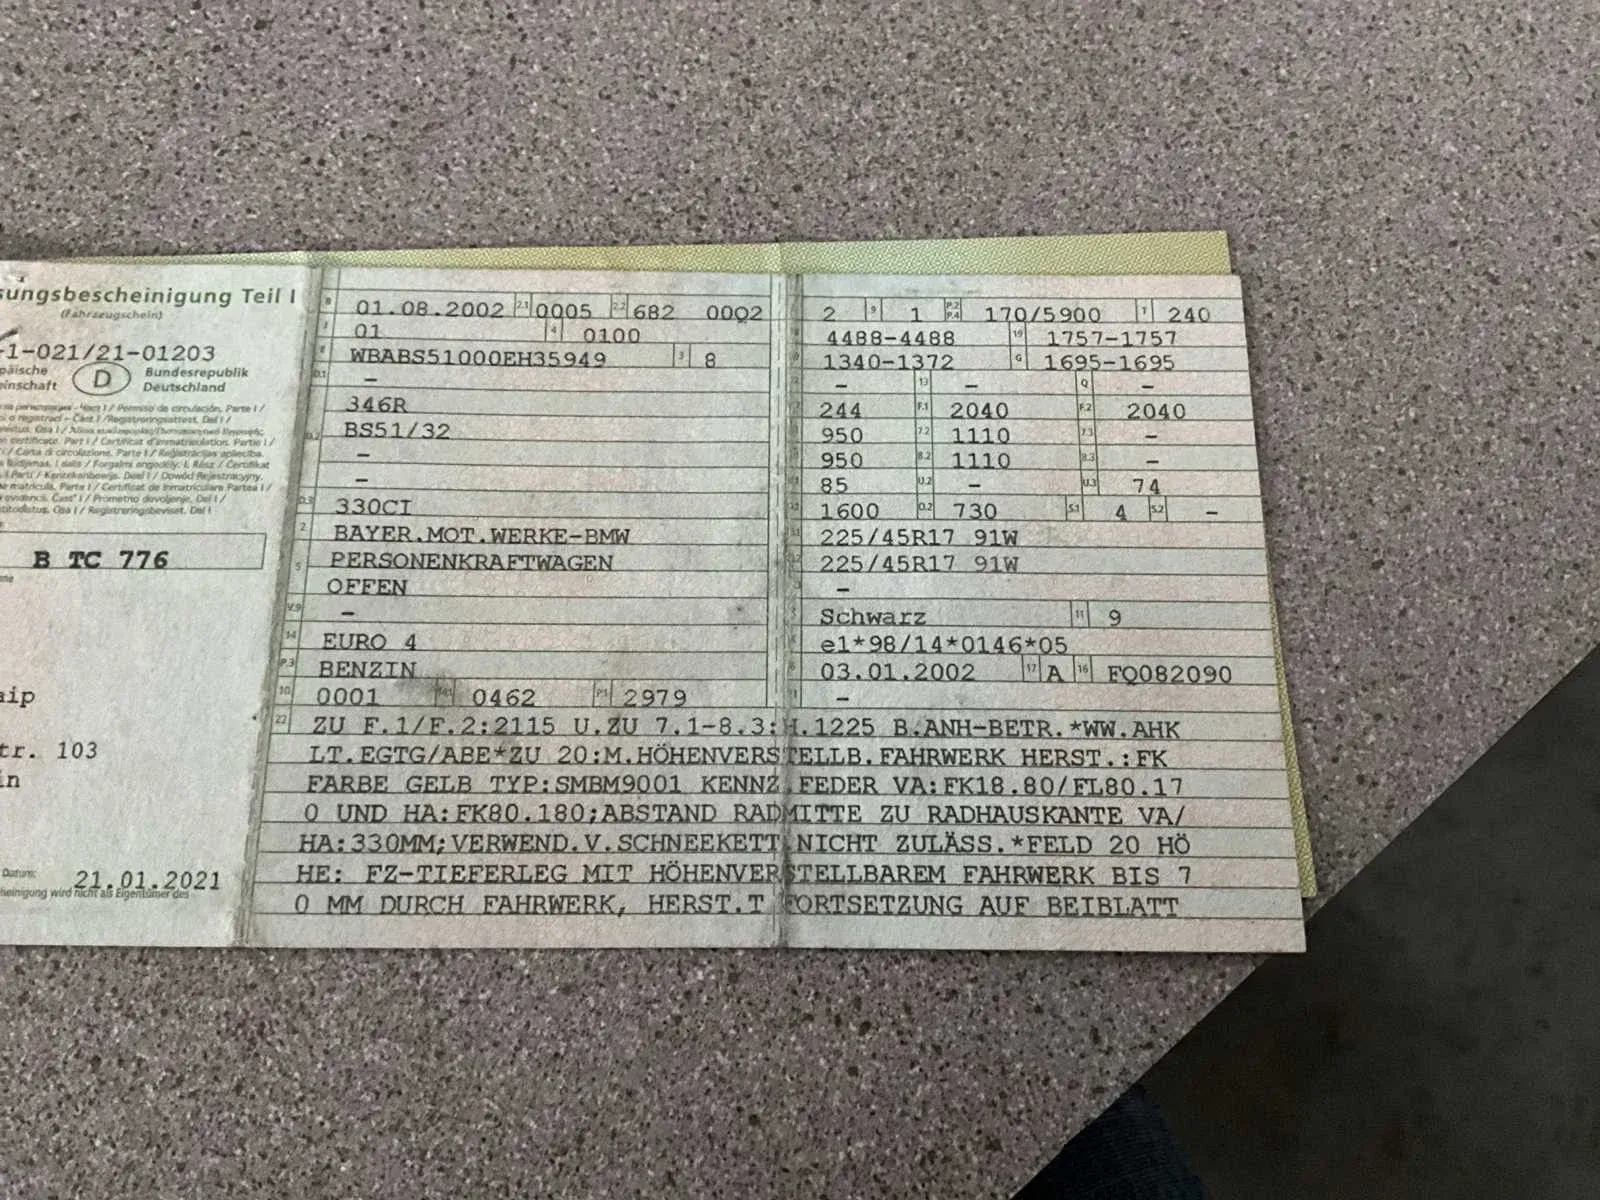 sungsbescheinigung Teil I
(Fahrzeugschein)
-1-021/21-01203
päische
einschaft
D
Bundesrepublik
Deutschland
B TC 776
aip
tr. 103
in
Datum:
21.01.2021
heinigung wird nicht als Eigentümer des
B 01.08.2002 2.1 0005 2.2 682 0002
J 01 4 0100
E WBABS51000EH35949 3 8
D.1 –
346R
D.2 BS51/32
–
–
D.3 330CI
2 BAYER.MOT.WERKE-BMW
5 PERSONENKRAFTWAGEN
OFFEN
V.9 –
14 EURO 4
P.3 BENZIN
10 0001 14.1 0462 P.1 2979
2 9 1 P.2 P.4 170/5900 T 240
18 4488-4488 19 1757-1757
20 1340-1372 G 1695-1695
12 – 13 – Q –
244 F.1 2040 F.2 2040
950 7.2 1110 7.3 –
950 8.2 1110 8.3 –
85 U.2 – U.3 74
1600 O.2 730 S.1 4 S.2 –
225/45R17 91W
225/45R17 91W
–
Schwarz 11 9
e1*98/14*0146*05
03.01.2002 17 A 16 FQ082090
–
22 ZU F.1/F.2:2115 U.ZU 7.1-8.3:H.1225 B.ANH-BETR.*WW.AHK
LT.EGTG/ABE*ZU 20:M.HÖHENVERSTELLB.FAHRWERK HERST.:FK
FARBE GELB TYP:SMBM9001 KENNZ FEDER VA:FK18.80/FL80.17
0 UND HA:FK80.180;ABSTAND RADMITTE ZU RADHAUSKANTE VA/
HA:330MM;VERWEND.V.SCHNEEKETT NICHT ZULÄSS.*FELD 20 HÖ
HE: FZ-TIEFERLEG MIT HÖHENVERSTELLBAREM FAHRWERK BIS 7
0 MM DURCH FAHRWERK, HERST.T FORTSETZUNG AUF BEIBLATT